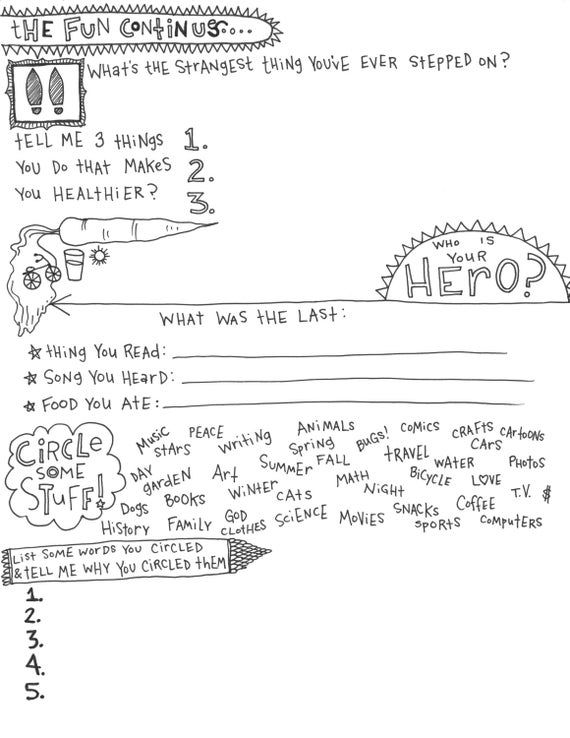 tHE FUN CONtiNUS....
WHAt'S tHE StRANGESt tHiNG YOU'VE EVER StEPPED ON?
tELL ME 3 tHiNGS 1.
YOU DO tHAt MAKES 2.
YOU HEALtHiER? 3.
WHO iS
YOUR
HERO?
WHAt WAS tHE LASt:
tHiNG YOU READ:
SONG YOU HEARD:
FOOD YOU AtE:
CiRCLE
SOME
StUFF!
MUSiC PEACE WRitiNG ANiMALS COMiCS CRAFtS CARtOONS
StARS SPRiNG BUGS! CARS
DAY GARDEN ARt SUMMER FALL tRAVEL WAtER PHOtOS
DOGS BOOKS WiNtER CAtS MAtH NiGHt BiCYCLE LOVE T.V. $
HiStORY FAMiLY GOD CLOtHES SCiENCE MOViES SNACKS SPORtS COFFEE COMPUtERS
LiSt SOME WORDS YOU CiRCLED
& tELL ME WHY YOU CiRCLED tHEM
1.
2.
3.
4.
5.